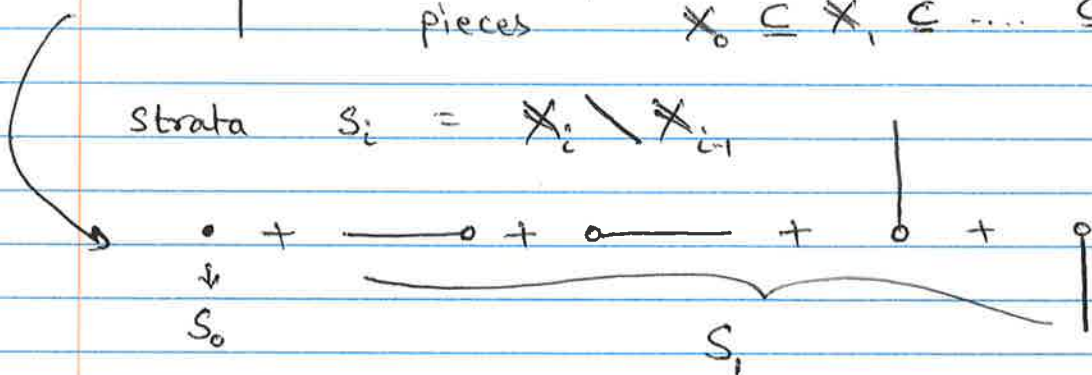 pieces 𝕏₀ ⊆ 𝕏₁ ⊆ .... ⊆
strata Sᵢ = 𝕏ᵢ \ 𝕏ᵢ₋₁
+ + + +
S₀ S₁